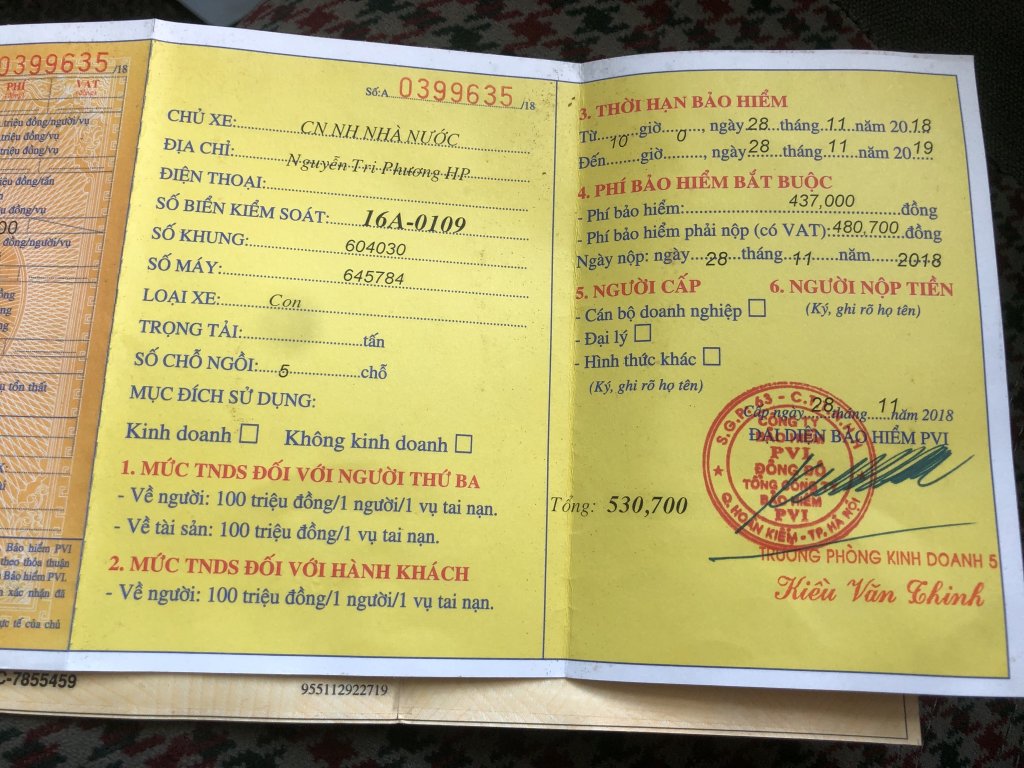 0399635/18
PHÍ VAT
triệu đồng/người/vụ
triệu đồng/vụ
triệu đồng/vụ
triệu đồng/tấn
triệu đồng/vụ
00
đồng/người/vụ
đồng
ng
ng
vụ tổn thất
Bảo hiểm PVI
theo thỏa thuận
Bảo hiểm PVI.
xác nhận đã
ực tế của chủ
Số:A 0399635/18
CHỦ XE: CN NH NHÀ NƯỚC
ĐỊA CHỈ: Nguyễn Tri Phương HP
ĐIỆN THOẠI:
SỐ BIỂN KIỂM SOÁT: 16A-0109
SỐ KHUNG: 604030
SỐ MÁY: 645784
LOẠI XE: Con
TRỌNG TẢI: tấn
SỐ CHỖ NGỒI: 5 chỗ
MỤC ĐÍCH SỬ DỤNG:
Kinh doanh Không kinh doanh
1. MỨC TNDS ĐỐI VỚI NGƯỜI THỨ BA
- Về người: 100 triệu đồng/1 người/1 vụ tai nạn.
- Về tài sản: 100 triệu đồng/1 vụ tai nạn.
2. MỨC TNDS ĐỐI VỚI HÀNH KHÁCH
- Về người: 100 triệu đồng/1 người/1 vụ tai nạn.
3. THỜI HẠN BẢO HIỂM
Từ 10 giờ 0, ngày 28 tháng 11 năm 2018
Đến giờ, ngày 28 tháng 11 năm 2019
4. PHÍ BẢO HIỂM BẮT BUỘC
- Phí bảo hiểm: 437,000 đồng
- Phí bảo hiểm phải nộp (có VAT): 480,700 đồng
Ngày nộp: ngày 28 tháng 11 năm 2018
5. NGƯỜI CẤP 6. NGƯỜI NỘP TIỀN
- Cán bộ doanh nghiệp (Ký, ghi rõ họ tên)
- Đại lý
- Hình thức khác
(Ký, ghi rõ họ tên)
Cấp ngày 28 tháng 11 năm 2018
ĐẠI DIỆN BẢO HIỂM PVI
CÔNG TY
BẢO HIỂM
PVI
ĐÔNG ĐÔ
TỔNG CÔNG TY
BẢO HIỂM
PVI
Q. HOÀN KIẾM - TP. HÀ NỘI
Tổng: 530,700
TRƯỞNG PHÒNG KINH DOANH 5
Kiều Văn Thinh
C-7855459
955112922719